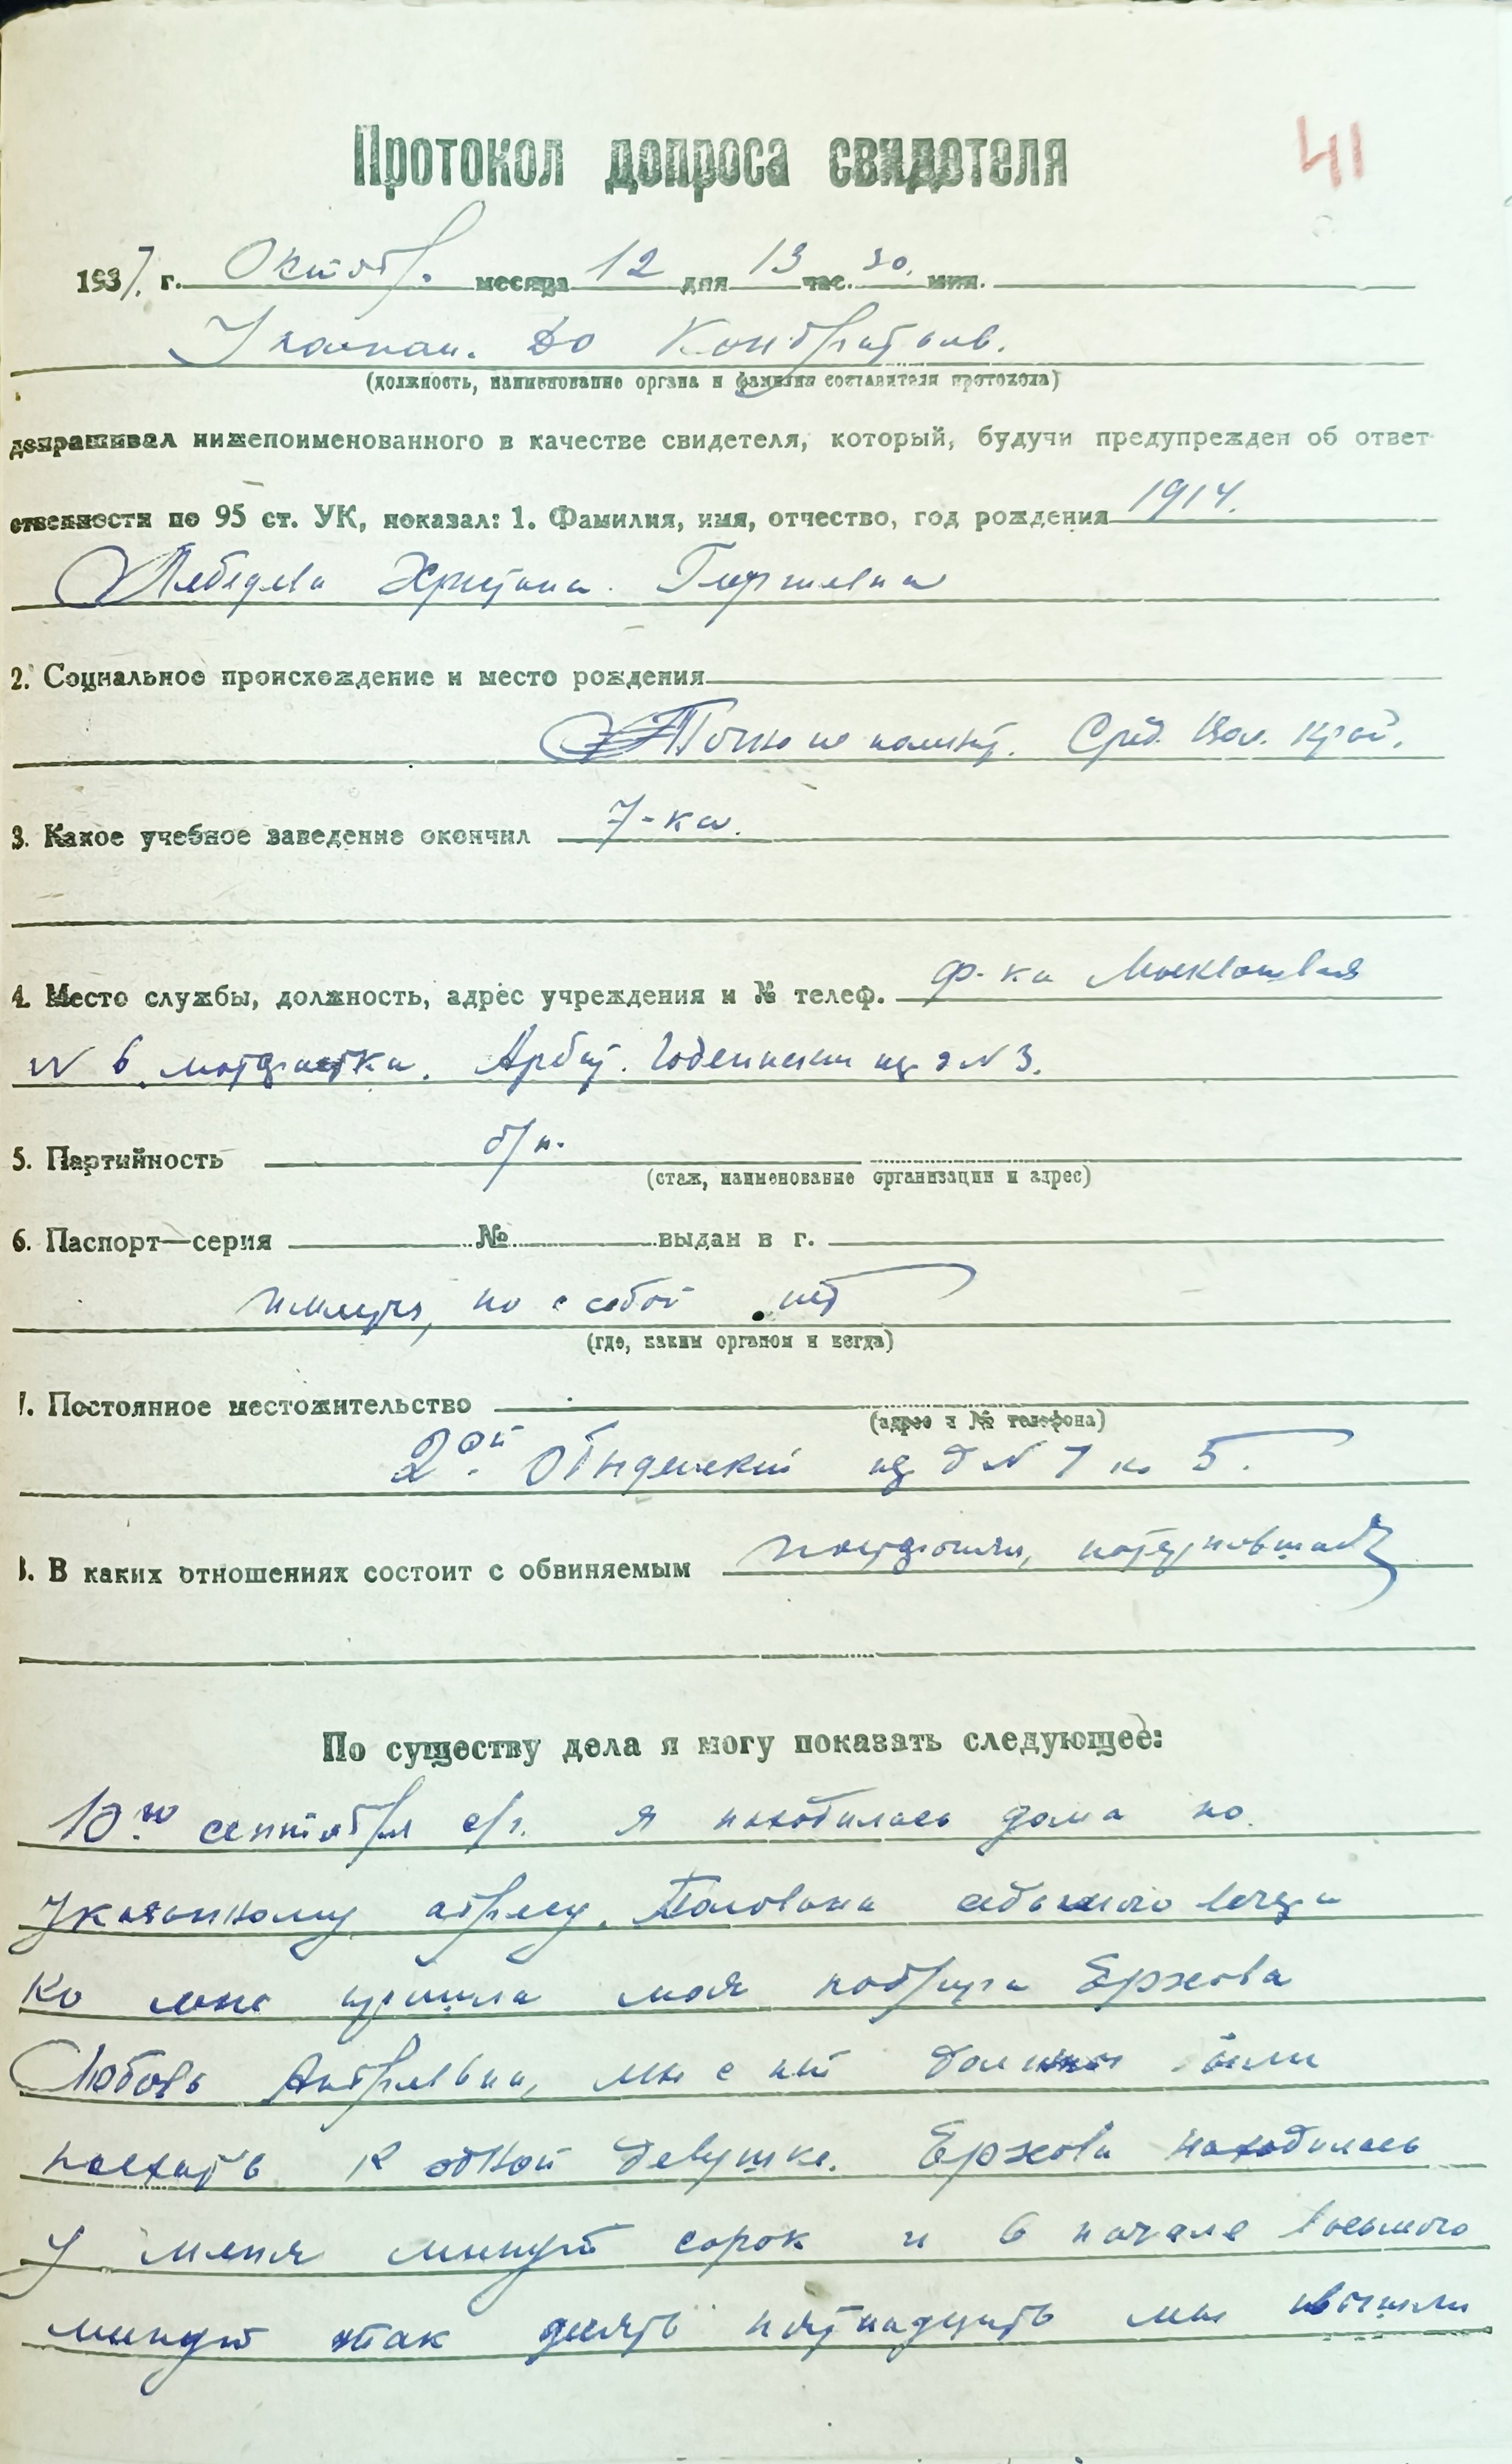 Протокол допроса свидетеля
41
1937 г. Октябр. месяца 12 дня 13 час. 30 мин.
До Кондратьев.
(должность, наименование органа и фамилия составителя протокола)
допрашивал нижепоименованного в качестве свидетеля, который, будучи предупрежден об ответ-
ственности по 95 ст. УК, показал: 1. Фамилия, имя, отчество, год рождения 1914.
Лебедева Георгиевна
2. Социальное происхождение и место рождения
Точно не Сред. Вол. Край.
3. Какое учебное заведение окончил 7-кл.
4. Место службы, должность, адрес учреждения и № телеф. ф-ка
N 6. Арбат. пер д N 3.
5. Партийность б/п.
(стаж, наименование организации и адрес)
6. Паспорт—серия № выдан в г.
имеется, но с собой нет
(где, каким органом и когда)
7. Постоянное местожительство
(адрес и № телефона)
2ой Обыденский пер д N 7 кв 5.
8. В каких отношениях состоит с обвиняемым
По существу дела я могу показать следующее:
10го сентября с/г. я находилась дома по
указанному адресу. Половина седьмого вечера
Ко мне пришла моя подруга Ержова
Любовь Андреевна, мы с ней должны были
поехать к одной девушке. Ержова находилась
у меня минут сорок и в начале восьмого
минут так десять пятнадцать мы вышли